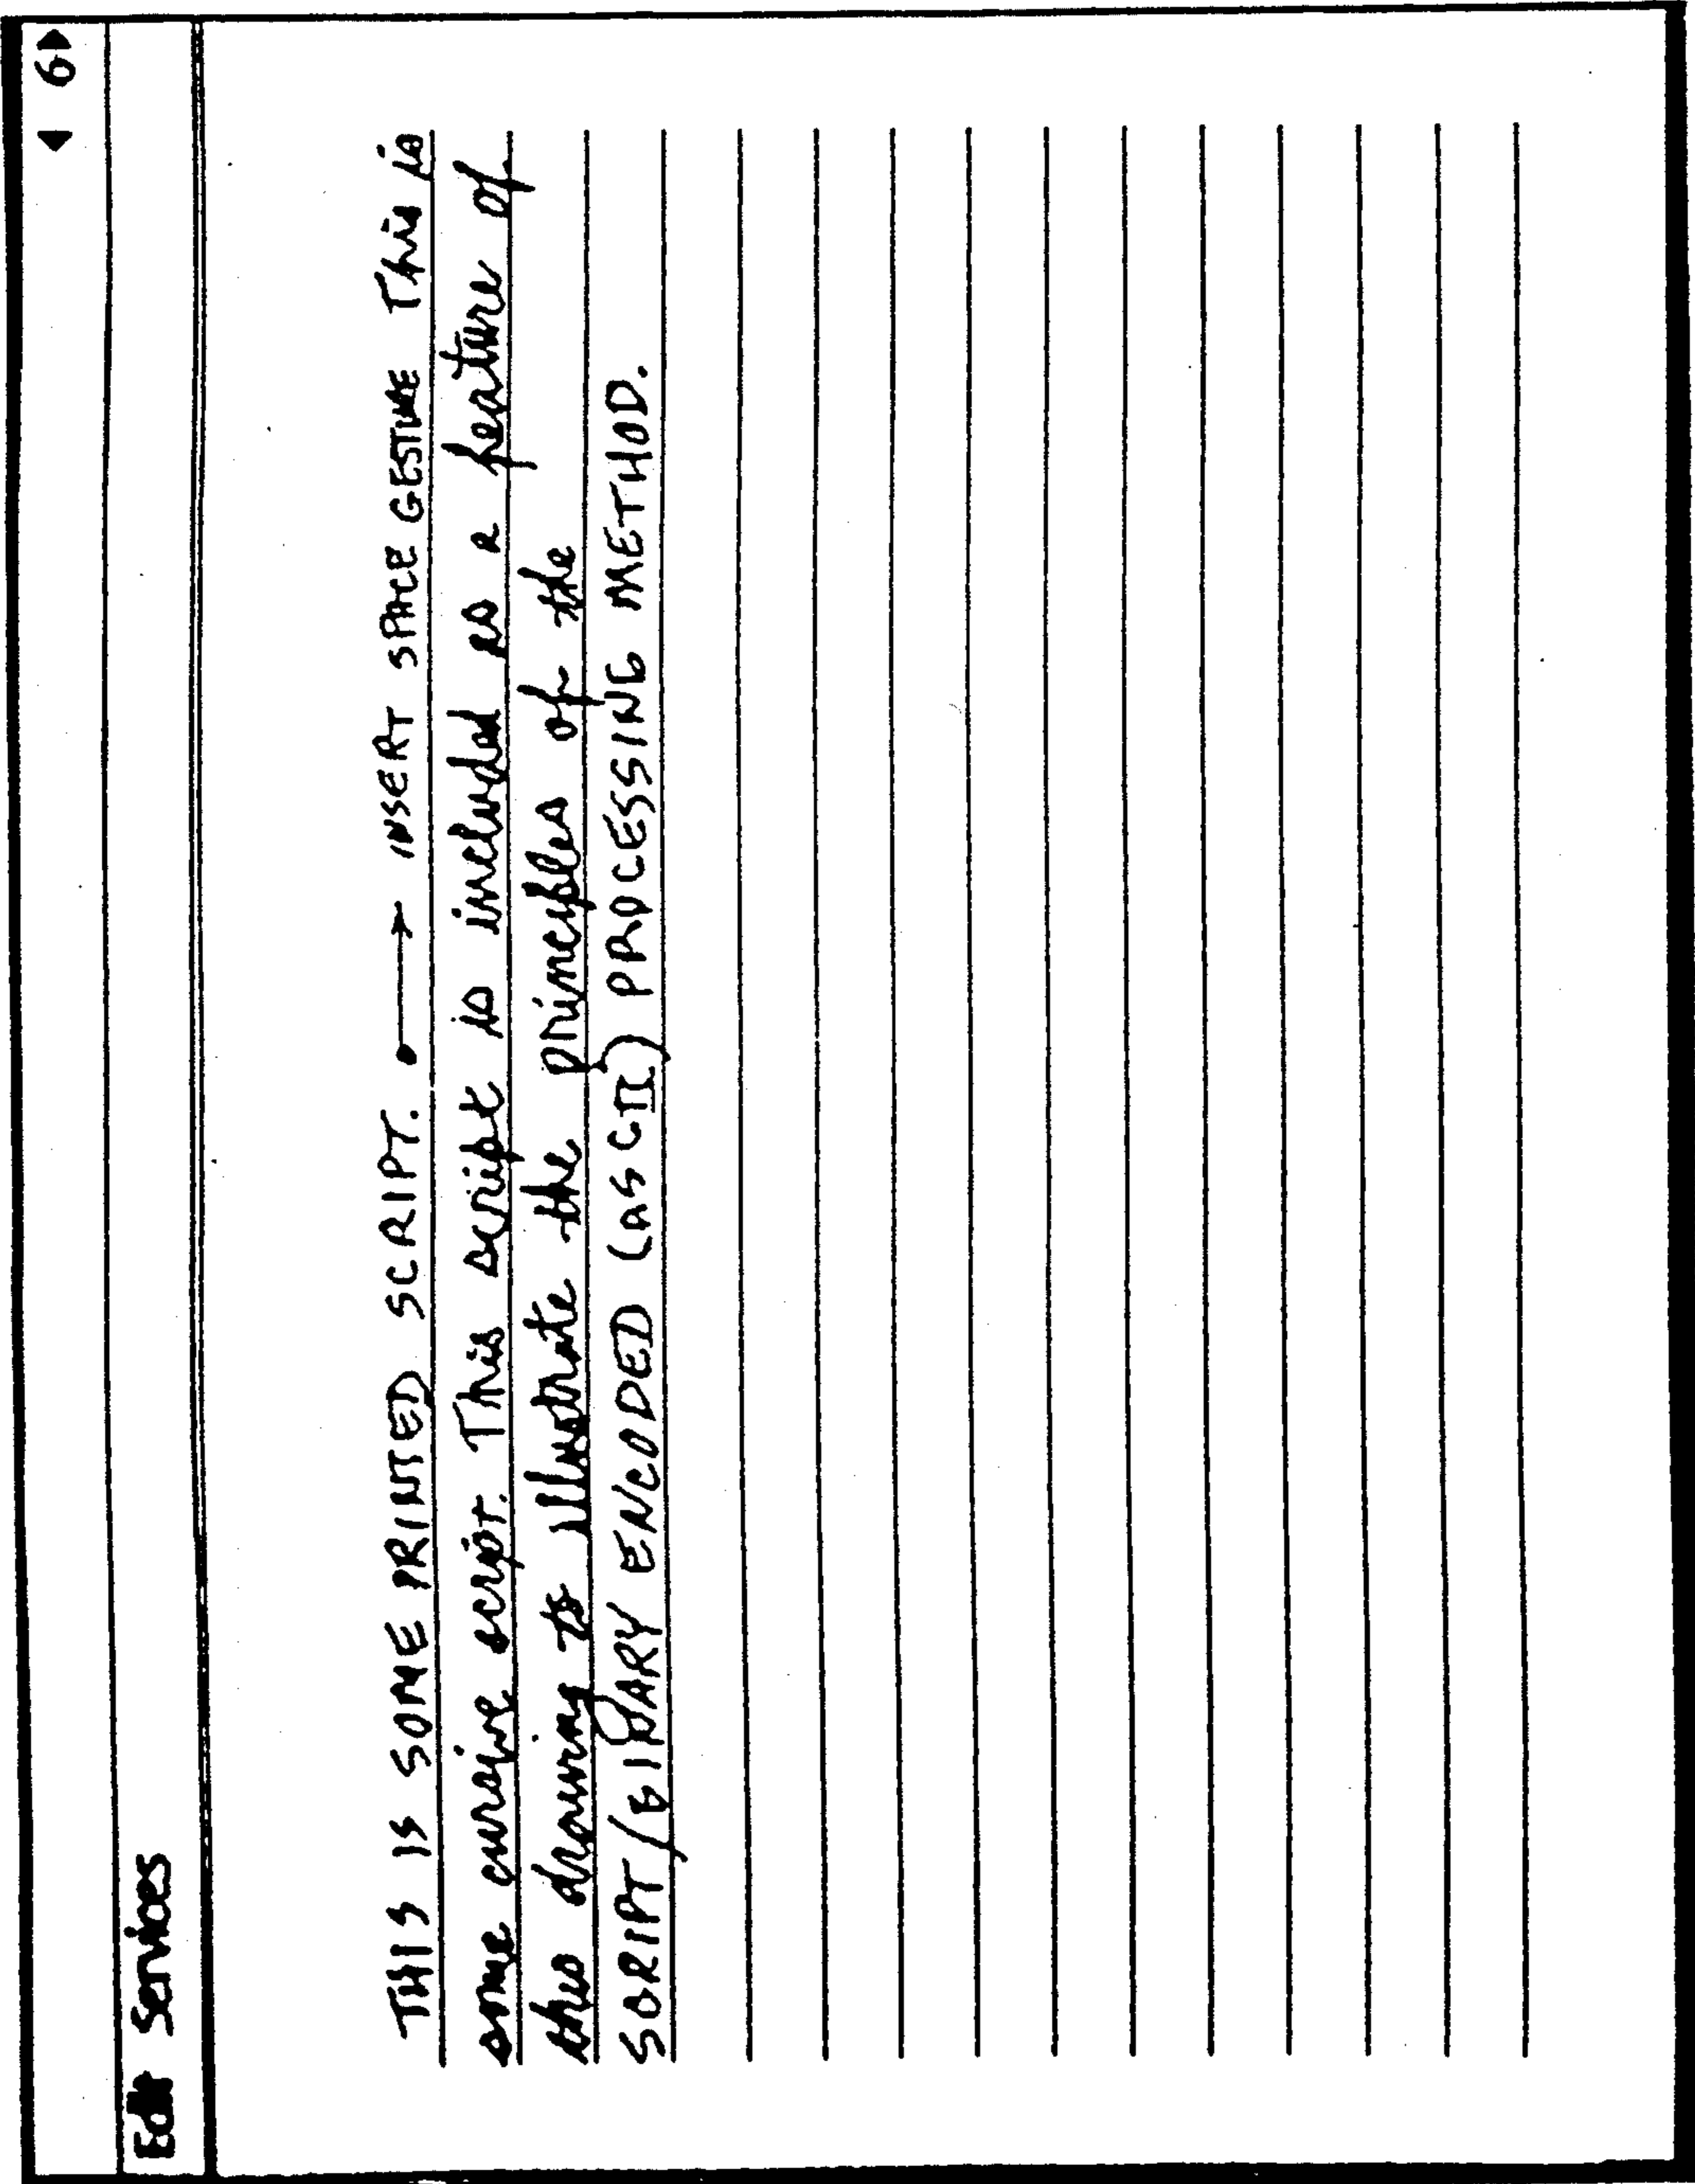 ◀ 6▶
Edit Services
THIS IS SOME PRINTED SCRIPT. •⟶ INSERT SPACE GESTURE This is
some cursive script. This script is included as a feature of
this drawing to illustrate the principles of the
SCRIPT/(BINARY ENCODED (ASCII) PROCESSING METHOD.